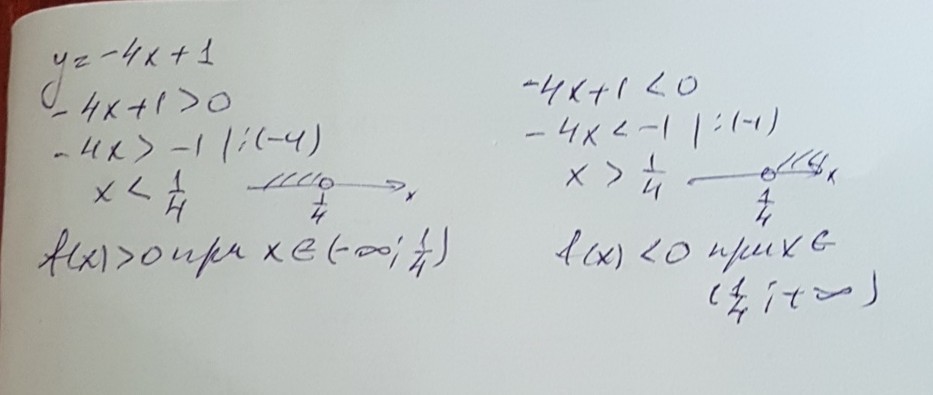 y = -4x + 1
-4x+1 > 0
-4x > -1 | : (-4)
x < 1/4
1/4
x
f(x) > 0 при x ∈ (-∞; 1/4)
-4x+1 < 0
-4x < -1 | : (-1)
x > 1/4
1/4
x
f(x) < 0 при x ∈
(1/4; +∞)